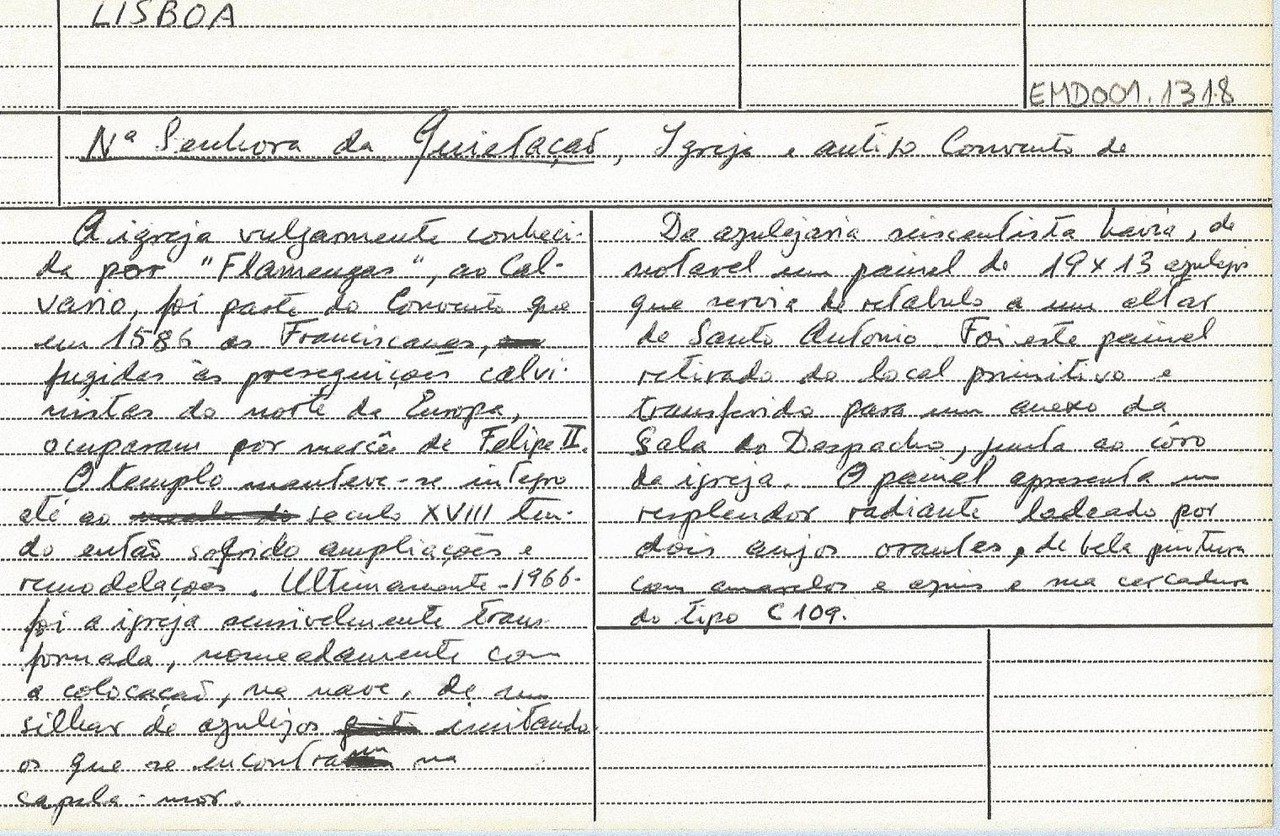 LISBOA
EMD001.1318
Nª Senhora da Quietação, Igreja e antigo Convento de
A igreja vulgarmente conheci-
da por "Flamengas", ao Cal-
vario, foi parte do Convento que
em 1586 as Franciscanas,
fugidas às preseguições calvi-
nistas do norte da Europa,
ocuparam por mercê de Felipe II.
O templo manteve-se integro
até ao seculo XVIII ten-
do então sofrido ampliações e
remodelações. Ultimamente -1966-
foi a igreja sensivelmente trans
formada, nomeadamente com
a colocação, na nave, de um
silhar de azulejos imitando
os que se encontram na
capela-mor.
Da azulejaria seiscentista havia, de
notavel um painel de 19x13 azulejos
que servia de retabulo a um altar
de Santo Antonio. Foi este painel
retirado do local primitivo e
transferido para um anexo da
Sala do Despacho, junta ao côro
da igreja. O painel apresenta um
resplendor radiante ladeado por
dois anjos orantes, de bela pintura
com amarelos e azuis e na cercadura
do tipo C109.